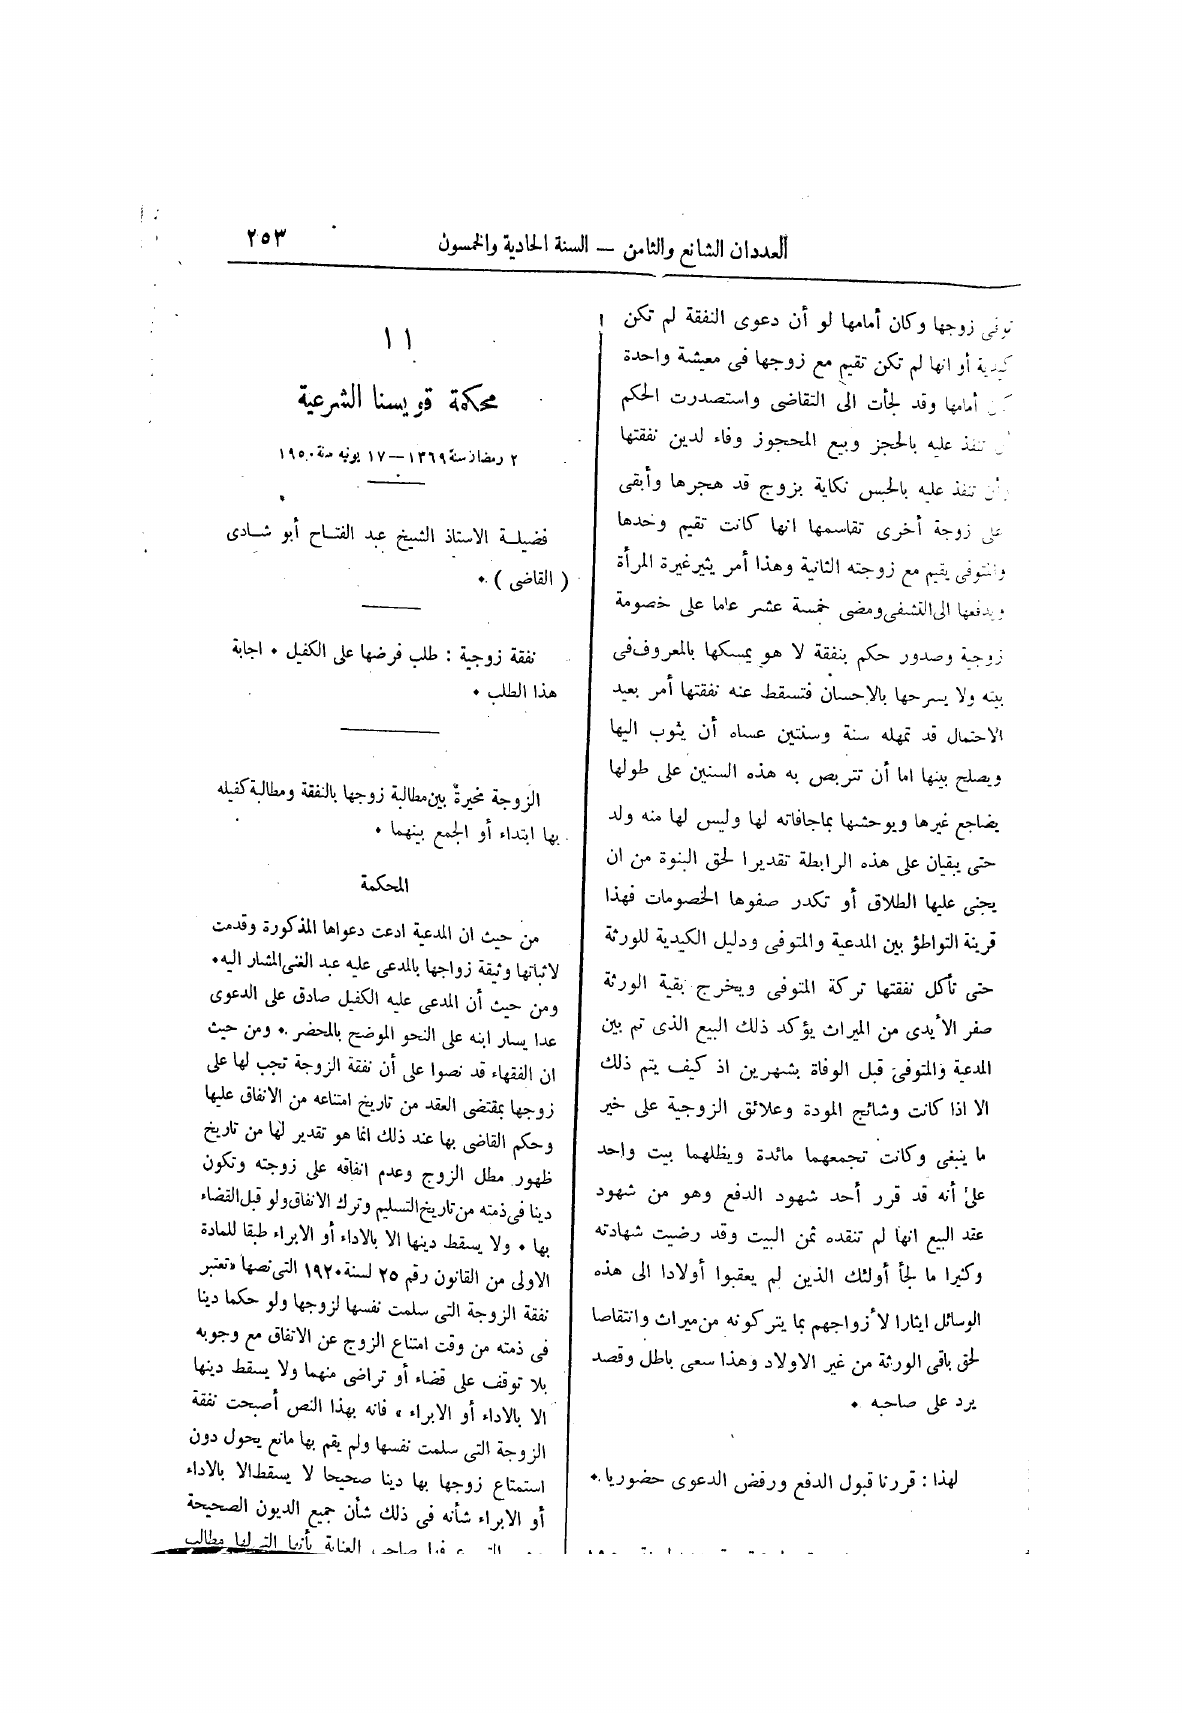 العددان السابع والثامن — السنة الحادية والخمسون
٢٥٣
توفى زوجها وكان أمامها لو أن دعوى النفقة لم تكن
كيدية أو انها لم تكن تقيم مع زوجها فى معيشة واحدة
أمامها وقد لجأت الى التقاضى واستصدرت الحكم
تنفذ عليه بالحجز وبيع المحجوز وفاء لدين نفقتها
وأن تنفذ عليه بالحبس نكاية بزوج قد هجرها وأبقى
على زوجة أخرى تقاسمها انها كانت تقيم وحدها
والمتوفى يقيم مع زوجته الثانية وهذا أمر يثير غيرة المرأة
ويدفعها الى التشفى ومضى خمسة عشر عاما على خصومة
زوجية وصدور حكم بنفقة لا هو يمسكها بالمعروف فى
بيته ولا يسرحها بالاحسان فتسقط عنه نفقتها أمر بعيد
الاحتمال قد تمهله سنة وسنتين عساه أن يثوب اليها
ويصلح بينها اما أن تتربص به هذه السنين على طولها
يضاجع غيرها ويوحشها بماجافاته لها وليس لها منه ولد
حتى يبقيان على هذه الرابطة تقديرا لحق البنوة من ان
يجنى عليها الطلاق أو تكدر صفوها الخصومات فهذا
قرينة التواطؤ بين المدعية والمتوفى ودليل الكيدية للورثة
حتى تأكل نفقتها تركة المتوفى ويخرج بقية الورثة
صفر الأيدى من الميراث يؤكد ذلك البيع الذى تم بين
المدعية والمتوفى قبل الوفاة بشهرين اذ كيف يتم ذلك
الا اذا كانت وشائج المودة وعلائق الزوجية على خير
ما ينبغى وكانت تجمعهما مائدة ويظلهما بيت واحد
على أنه قد قرر أحد شهود الدفع وهو من شهود
عقد البيع انها لم تنقده ثمن البيت وقد رضيت شهادته
وكثيرا ما لجأ أولئك الذين لم يعقبوا أولادا الى هذه
الوسائل ايثارا لأزواجهم بما يتركونه من ميراث وانتقاصا
لحق باقى الورثة من غير الاولاد وهذا سعى باطل وقصد
يرد على صاحبه •
لهذا : قررنا قبول الدفع ورفض الدعوى حضوريا •
١١
محكمة قويسنا الشرعية
٢ رمضان سنة ١٣٦٩ — ١٧ يونيه سنة ١٩٥٠
فضيلة الاستاذ الشيخ عبد الفتاح أبو شادى
( القاضى ) •
نفقة زوجية : طلب فرضها على الكفيل • اجابة
هذا الطلب •
الزوجة مخيرة بين مطالبة زوجها بالنفقة ومطالبة كفيله
بها ابتداء أو الجمع بينهما •
المحكمة
من حيث ان المدعية ادعت دعواها المذكورة وقدمت
لاثباتها وثيقة زواجها بالمدعى عليه عبد الغنى المشار اليه•
ومن حيث أن المدعى عليه الكفيل صادق على الدعوى
عدا يسار ابنه على النحو الموضح بالمحضر • ومن حيث
ان الفقهاء قد نصوا على أن نفقة الزوجة تجب لها على
زوجها بمقتضى العقد من تاريخ امتناعه من الانفاق عليها
وحكم القاضى بها عند ذلك انما هو تقدير لها من تاريخ
ظهور مطل الزوج وعدم انفاقه على زوجته وتكون
دينا فى ذمته من تاريخ التسليم وترك الانفاق ولو قبل القضاء
بها • ولا يسقط دينها الا بالاداء أو الابراء طبقا للمادة
الاولى من القانون رقم ٢٥ لسنة ١٩٢٠ التى نصها «تعتبر
نفقة الزوجة التى سلمت نفسها لزوجها ولو حكما دينا
فى ذمته من وقت امتناع الزوج عن الانفاق مع وجوبه
بلا توقف على قضاء أو تراضى منهما ولا يسقط دينها
الا بالاداء أو الابراء » فانه بهذا النص أصبحت نفقة
الزوجة التى سلمت نفسها ولم يقم بها مانع يحول دون
استمتاع زوجها بها دينا صحيحا لا يسقط الا بالاداء
أو الابراء شأنه فى ذلك شأن جميع الديون الصحيحة
صاحب العناية بأنها التى لها مطالب